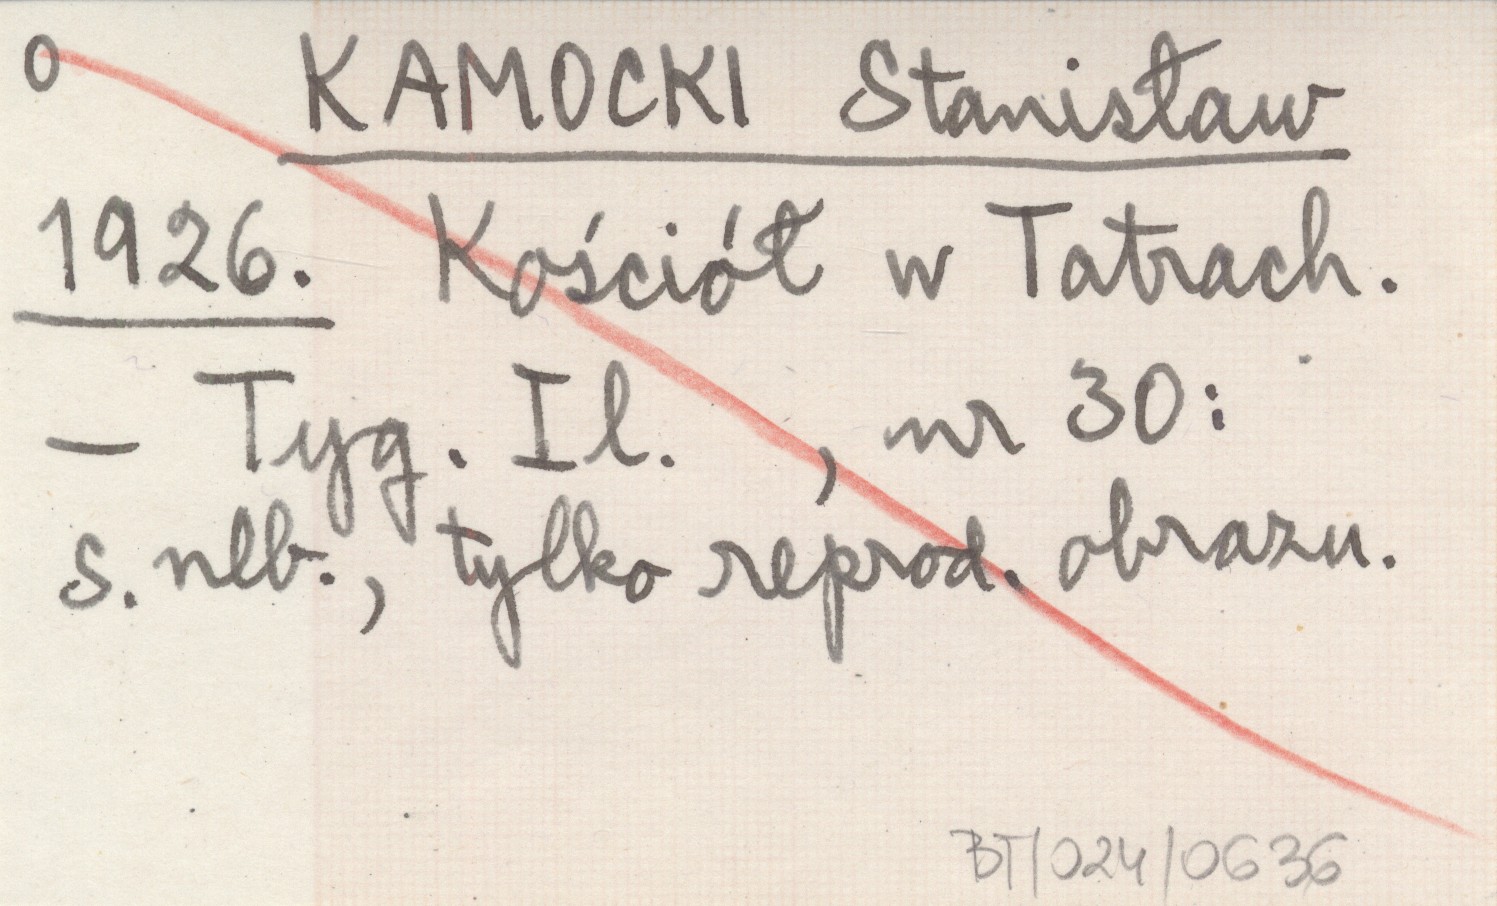 O KAMOCKI Stanisław
1926. Kościół w Tatrach.
– Tyg. Il. , nr 30:
s. nlb., tylko reprod. obrazu.
BT/024/0636